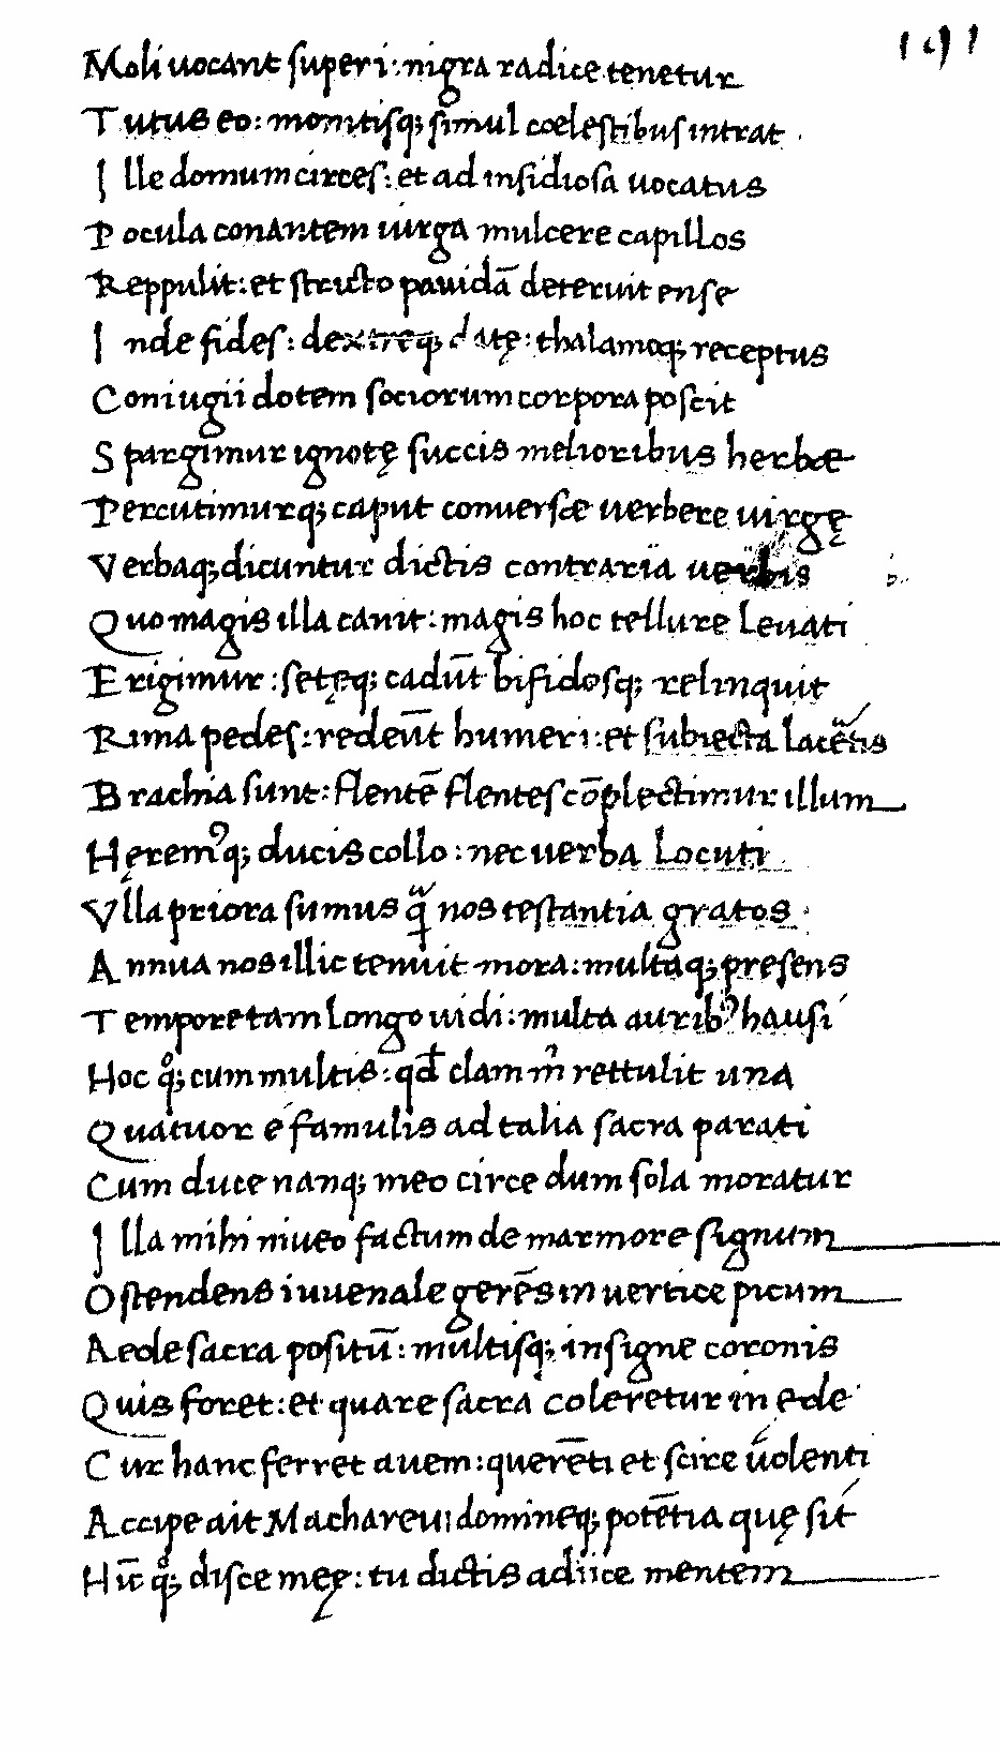 191
Moli uocant superi: nigra radice tenetur
Tutus eo: monitisq; simul coelestibus intrat
Ille domum circes: et ad insidiosa uocatus
Pocula conantem uirga mulcere capillos
Reppulit: et stricto pauidā deteruit ense
Inde fides: dextreq; datę: thalamoq; receptus
Coniugii dotem sociorum corpora poscit
Spargimur ignotę succis melioribus herbæ
Percutimurq; caput conuersæ uerbere uirgę
Verbaq; dicuntur dictis contraria uerbis
Quo magis illa canit: magis hoc tellure leuati
Erigimur: setęq; cadūt bifidosq; relinquit
Rima pedes: redeūt humeri: et subiecta lacētis
Brachia sunt: flentē flentes cōplectimur illum
Hęremꝰq; ducis collo: nec uerba locuti
Vlla priora sumus q̃ nos testantia gratos
Annua nos illic tenuit mora: multaq; presens
Tempore tam longo uidi: multa auribꝰ hausi
Hoc qͦ; cum multis: qđ clam m̃ rettulit una
Quatuor é famulis ad talia sacra parati
Cum duce nanq; meo circe dum sola moratur
Illa mihi niueo factum de marmore signum
Ostendens iuuenale gerēs in uertice picum
Aede sacra positū: multisq; insigne coronis
Quis foret: et quare sacra coleretur in ede
Cur hanc ferret auem: querēti et scire uolenti
Accipe ait Machareu: domineq; potētia quę sit
Hīc qͦ; disce męę: tu dictis adiice mentem